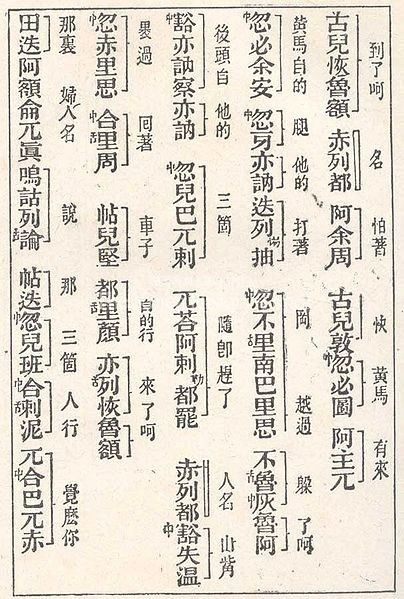 到了呵 名 怕著 快 黃馬 有來
古兒恢魯額 赤列都 阿余周 古兒敦中忽必圖 阿主兀
黃馬自的 腿 他的 打著 岡 越過 躲 了呵
中忽必余安 中忽牙亦訥 迭列勒抽 中忽不舌里南巴里思 不舌魯中灰魯阿
後頭自 他的 三箇 隨卽趕了 人名 山觜
中豁亦訥察亦訥 中忽兒巴兀剌 兀荅阿剌勒都罷 赤列都 中豁失溫
過 囘著 車子 自的行 來了呵
中忽赤里思 中合舌里周 帖兒堅 都舌里顏 亦舌列恢魯額
那裏 婦人名 說 那 三箇人行 覺麽你
田迭阿額侖兀眞鳴詁列舌論 帖迭中忽兒班中合舌剌泥 兀中合巴兀赤